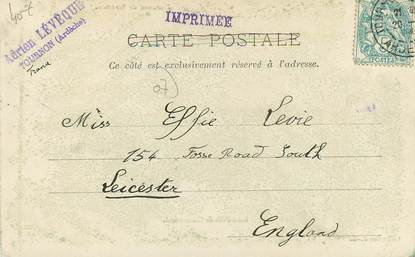 Adrien LÉVÊQUE
TOURNON (Ardèche)
France
IMPRIMEE
CARTE POSTALE
Ce côté est exclusivement réservé à l'adresse.
07
Miss Effie Levie
154 Fosse Road South
Leicester
England
POSTES